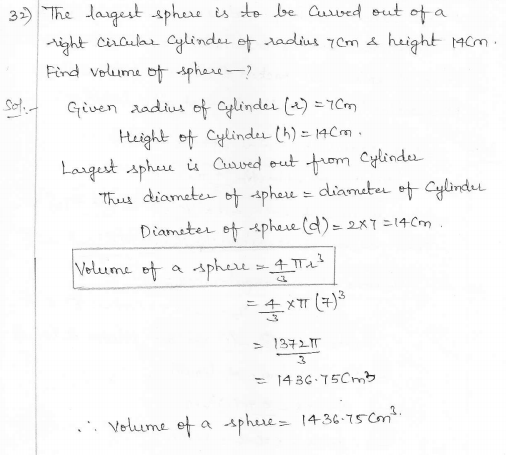 32) The largest sphere is to be Curved out of a
right Circular Cylinder of radius 7Cm & height 14Cm.
Find volume of sphere —?
Sol:- Given radius of Cylinder (r) = 7Cm
Height of Cylinder (h) = 14Cm.
Largest sphere is Curved out from Cylinder
Thus diameter of sphere = diameter of Cylinder
Diameter of sphere (d) = 2×7 = 14Cm.
Volume of a sphere = 4/3 πr³
= 4/3 × π (7)³
= 1372π/3
= 1436.75Cm³
∴ Volume of a sphere = 1436.75Cm³.